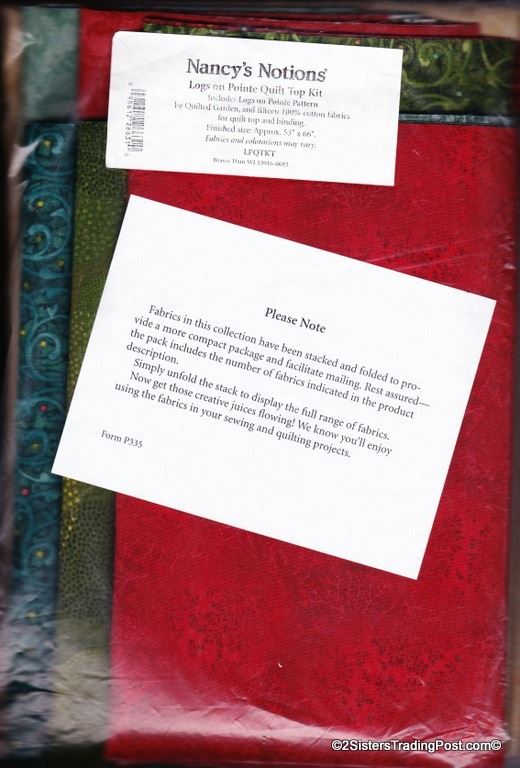 Nancy's Notions®
Logs on Pointe Quilt Top Kit
Includes Logs on Pointe Pattern
by Quilted Garden, and fifteen 100% cotton fabrics
for quilt top and binding.
Finished size: Approx. 53" x 66".
Fabrics and colorations may vary.
LPQTKT
Beaver Dam WI 53916-0683
Please Note
Fabrics in this collection have been stacked and folded to pro-
vide a more compact package and facilitate mailing. Rest assured—
the pack includes the number of fabrics indicated in the product
description.
Simply unfold the stack to display the full range of fabrics.
Now get those creative juices flowing! We know you'll enjoy
using the fabrics in your sewing and quilting projects.
Form P335
©2SistersTradingPost.com©